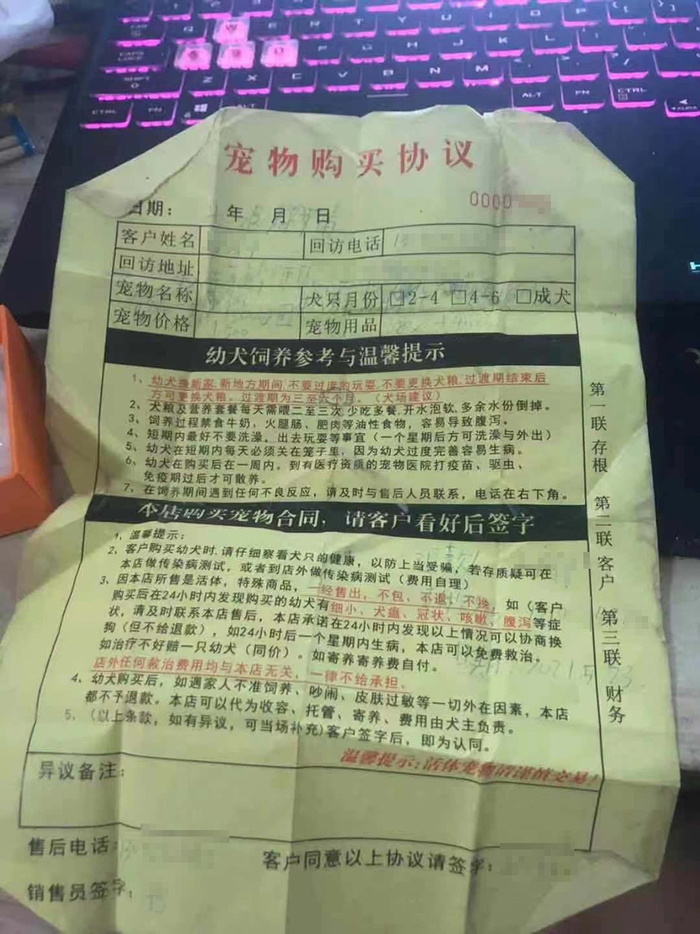 宠物购买协议
0000
日期： 年 月 日
客户姓名 回访电话
回访地址
宠物名称 犬只月份 □2-4 □4-6 □成犬
宠物价格 1500 宠物用品
幼犬饲养参考与温馨提示
1、幼犬换新家，新地方期间，不要过度的玩耍，不要更换犬粮，过渡期结束后
方可更换犬粮。过渡期为三至六个月。（犬场建议）
2、犬粮及营养套餐每天需喂二至三次，少吃多餐，开水泡软，多余水份倒掉。
3、饲养过程禁食牛奶，火腿肠、肥肉等油性食物，容易导致腹泻。
4、短期内最好不要洗澡。出去玩耍等事宜（一个星期后方可洗澡与外出）
5、幼犬在短期内每天必须关在笼子里，因为幼犬过度完善容易生病。
6、幼犬在购买后在一周内。到有医疗资质的宠物医院打疫苗、驱虫、
免疫期过后才可散养。
7、在饲养期间遇到任何不良反应，请及时与售后人员联系，电话在右下角。
本店购买宠物合同，请客户看好后签字
1、温馨提示：
2、客户购买幼犬时，请仔细察看犬只的健康，以防上当受骗，若存质疑可在
本店做传染病测试，或者到店外做传染病测试（费用自理）
3、因本店所售是活体，特殊商品，一经售出，不包、不退、不换，如（客户
购买后在24小时内发现购买的幼犬有细小、犬瘟、冠状、咳嗽、腹泻等症
状，请及时联系本店售后，本店承诺在24小时内发现以上情况可以协商换
狗（但不给退款），如24小时后一个星期内生病，本店可以免费救治。
如治疗不好赔一只幼犬（同价）。如寄养寄养费自付。
店外任何救治费用均与本店无关，一律不给承担。
4、幼犬购买后，如遇家人不准饲养、吵闹、皮肤过敏等一切外在因素，本店
都不予退款。本店可以代为收容、托管、寄养、费用由犬主负责。
5、（以上条款，如有异议，可当场补充）客户签字后，即为认同。
温馨提示：活体宠物请谨慎交易！
异议备注：
售后电话：
客户同意以上协议请签字：
销售员签字：
第一联 存根 第二联 客户 第三联 财务
CTRL
FN
ALT
ALT
FN
CTRL